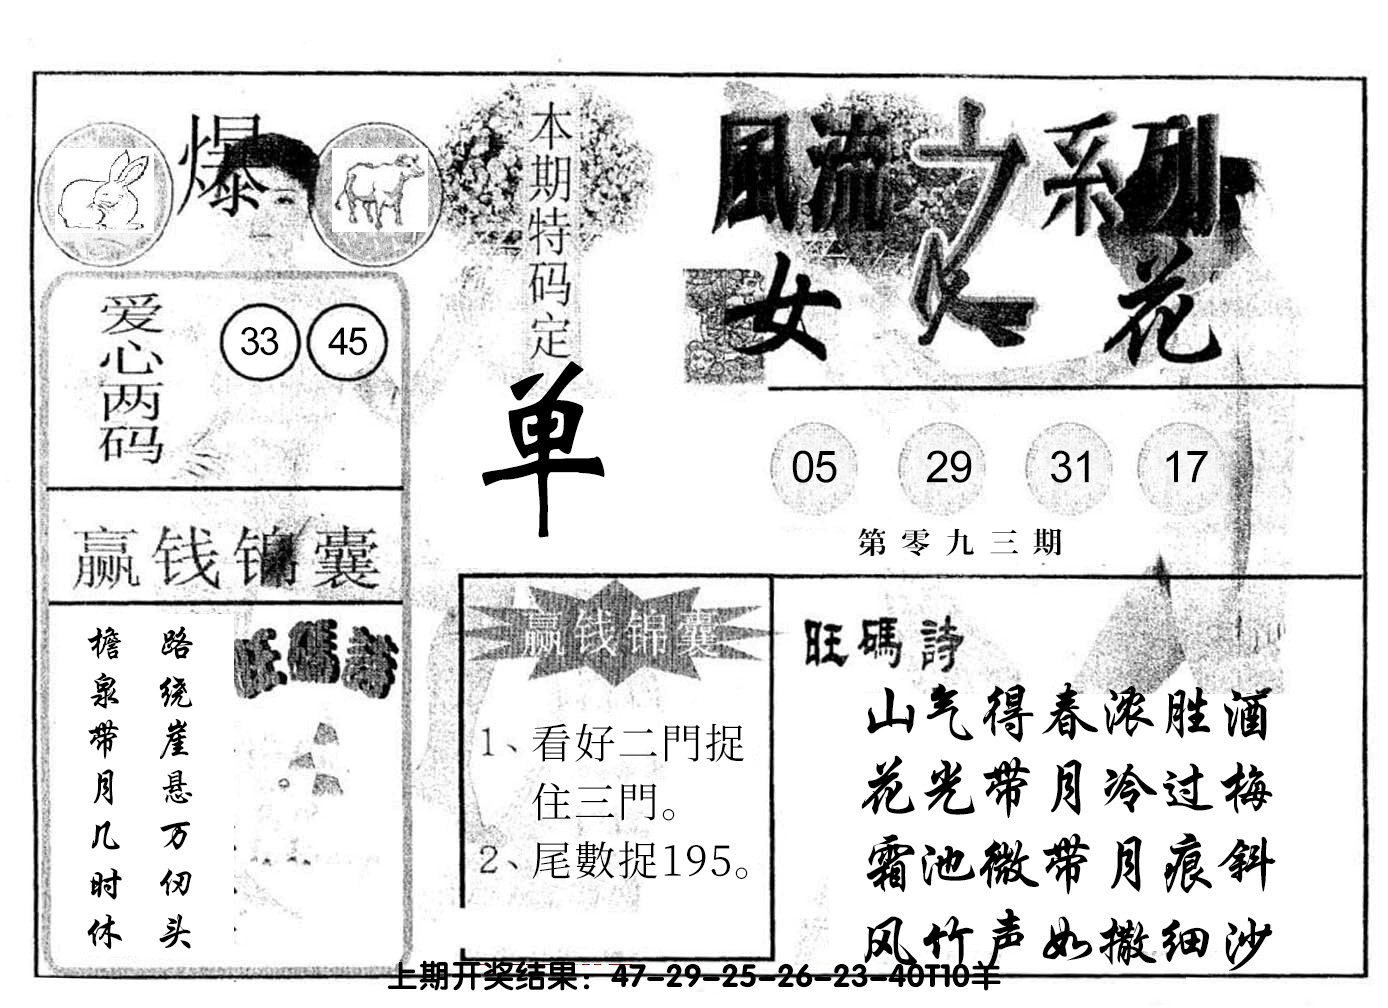 爆
本期特码定
单
風流之系列
女人花
爱心两码
33 45
05 29 31 17
第零九三期
赢钱锦囊
路绕崖悬万仞头
檐泉带月几时休
旺碼詩
赢钱锦囊
1、看好二門捉
住三門。
2、尾數捉195。
旺碼詩
山气得春浓胜酒
花光带月冷过梅
霜池微带月痕斜
风竹声如撒细沙
上期开奖结果：47-29-25-26-23-40T10羊